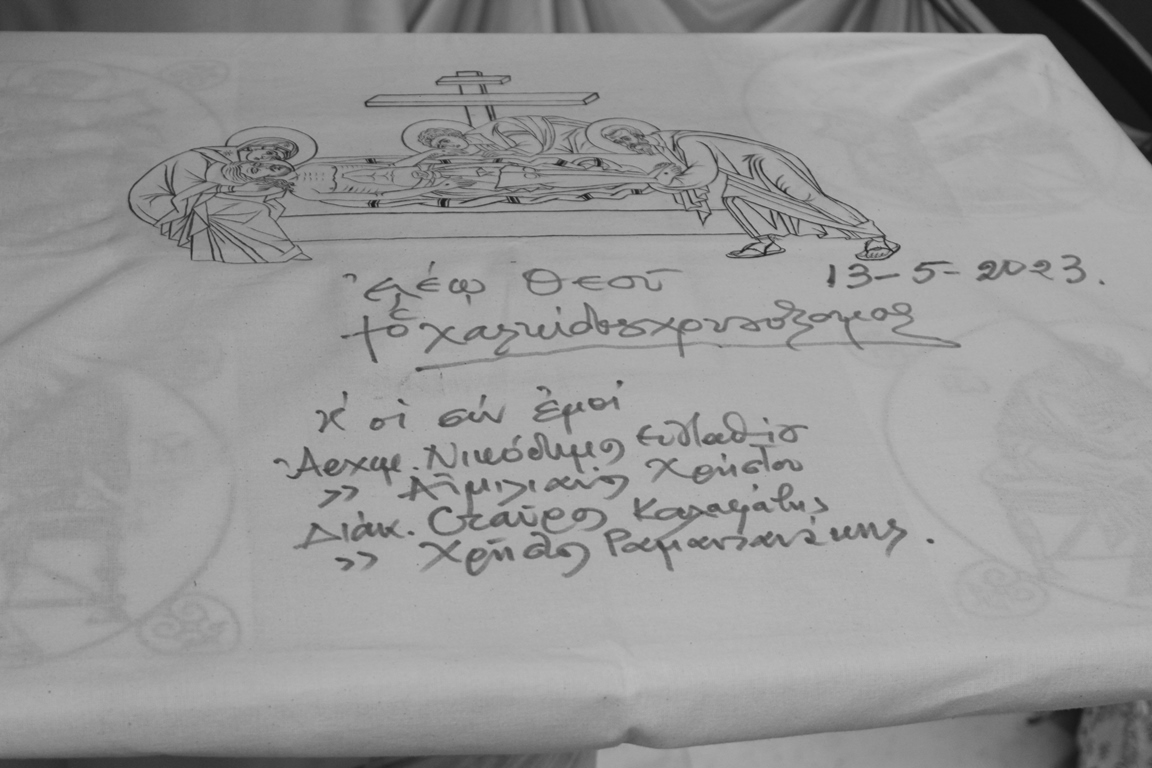 ἐλέῳ Θεοῦ
13-5-2023.
† ὁ Χαλκίδος Χρυσόστομος
κ' οἱ σύν ἐμοί
Ἀρχιμ. Νικόδημος Εὐσταθίου
>> Αἰμιλιανός Χρήστου
Διάκ. Σταῦρος Καλαφάτης
>> Χρῆστος Ραμαντανάκης.